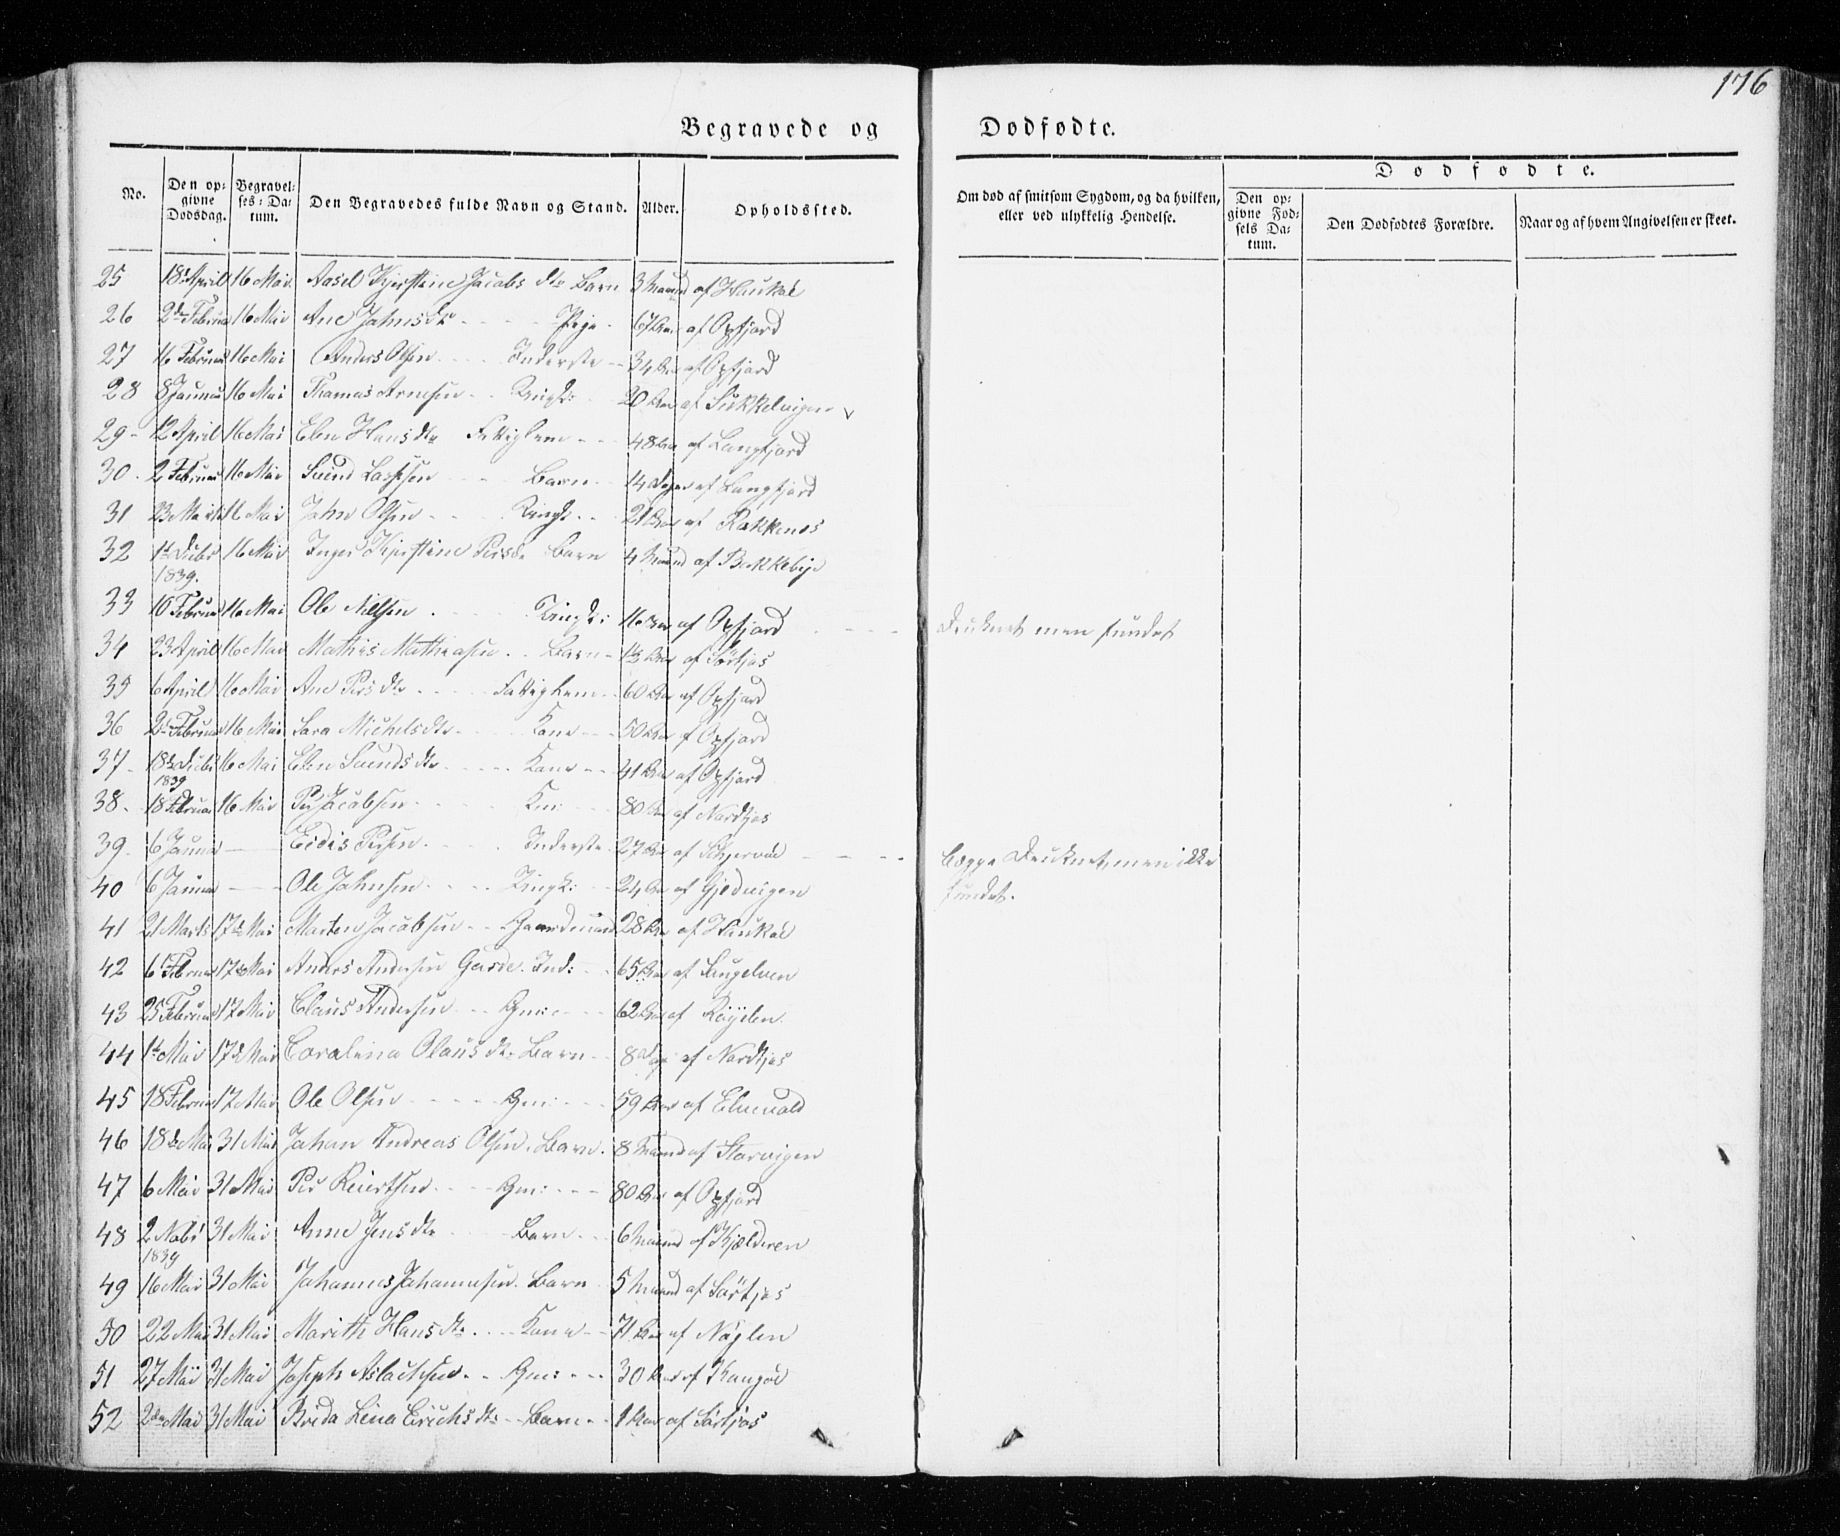 176
Begravede og Dødfødte.
No. Den opgivne Dødsdag. Begravelses-Datum. Den Begravedes fulde Navn og Stand. Alder. Opholdssted. Om død af smitsom Sygdom, og da hvilken, eller ved ulykkelig Hendelse. Dødfødte.
Den opgivne Fødsels Datum. Den Dødfødtes Forældre. Naar og af hvem Angivelsen er skeet.
25 18 April 16 Mai Aasel Kjerstine Jacobs dtr Barn 3 Maaned af Haukøe
26 2den Februar 16 Mai Ane Jahns dtr Pige 67 Aar af Oxfjord
27 16 Februar 16 Mai Anders Olsen Inderste 34 Aar af Oxfjord
28 8 Januar 16 Mai Thomas Arnesen Ungk: 20 Aar af Sukkelvigen
29 12 April 16 Mai Elen Hans dtr Fattiglem 48 Aar af Langfjord
30 2 Februar 16 Mai Svend Larssen Barn 14 Dage af Langfjord
31 23 Marts 16 Mai John Olsen Ungk: 21 Aar af Rakkenes
32 1t Decbr 1839. 16 Mai Inger Kjerstine Persdr Barn 4 Maaned af Bakkebye
33 10 Februar 16 Mai Ole Nilsen Ungk: 16 Aar af Oxfjord Druknet men fundet
34 23 April 16 Mai Mathis Mathiasen Barn 1½ Aar af Sørkjos
35 6 April 16 Mai Ane Pers dtr Fattiglem 60 Aar af Oxfjord
36 2den Februar 16 Mai Sara Michels dtr Kone 50 Aar af Oxfjord
37 18 Decbr 1839 16 Mai Elen Svends dtr Kone 41 Aar af Oxfjord
38 18 Februar 16 Mai Per Jacobsen 80 Aar af Nordkjos
39 6 Januar Eidis Persen Inderste 27 Aar af Skjervøe begge Druknet, men ikke
40 6 Januar Ole Johnsen Ungk: 24 Aar af Gjedvigen fundet.
41 21 Marts 17de Mai Morten Jacobsen Gaardmand 28 Aar af Haukøe
42 6 Februar 17de Mai Anders Andersen Ind: 65 Aar af
43 25 Februar 17 Mai Claus Andersen Gm: 62 Aar af Røyelen
44 1t Mai 17de Mai Coralina Olaus dtr Barn 8 Dage af Nordkjos
45 18 Februar 17 Mai Ole Olsen Gm: 59 Aar af Elvevold
46 18de Mai 31 Mai Johan Andreas Olsen Barn 8 Maaned af Storvigen
47 6 Mai 31 Mai Per Reiertsen Gm: 80 Aar af Oxfjord
48 2 Novbr 1839 31 Mai Anne Jens dtr Barn 6 Maaned af Kjælderen
49 16 Mai 31 Mai Johannes Johannesen Barn 5 Maaned af Sørkjos
50 22 Mai 31 Mai Marith Hans dtr Kone 71 Aar af Nøglen
51 27 Mai 31 Mai Joseph Aslachsen Gm: 30 Aar af Kaagøe
52 2den Mai 31 Mai Breda Lina Erichs dtr Barn 1 Aar af Sørkjos